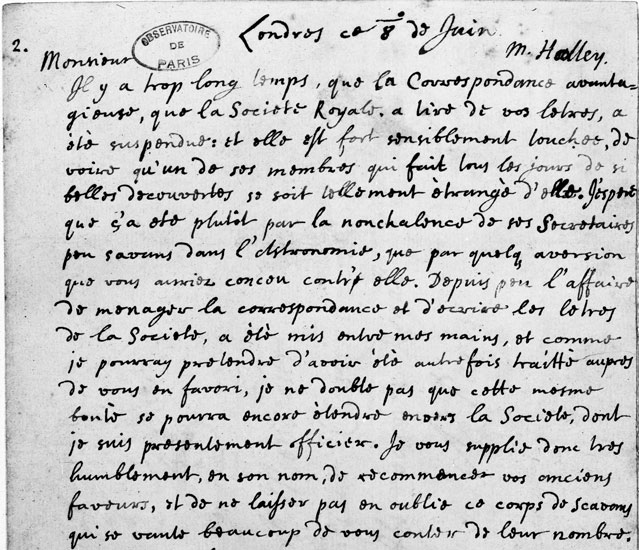 2.
OBSERVATOIRE DE PARIS
Londres ce 8.o de Juin
Monsieur
M. Halley.
Il y a trop long temps, que la Correspondance avanta-
gieuse, que la Societè Royale, a tirè de vos letres, a
ètè suspendue: et elle est fort sensiblement touchee, de
voire qu'un de ses membres qui fait tous les jours de si
belles decouvertes se soit tellement ètrangè d'elle. J'espere
que ç'a etè plutit par la nonchalence de ses Secretaires
peu savans dans l'Astronomie, que par quelq aversion
que vous auriez conceu contre elle. Depuis peu l'affaire
de menager la correspondance et d'ecrire les letres
de la Societe, a ètè mis entre mes mains, et comme
je pourray pretendre d'avoir ètè autrefois traittè aupres
de vous en favori, je ne doubte pas que cette mesme
bonte se pourra encore ètendre envers la Societe, dont
je suis presentement officier. Je vous supplie donc tres
humblement, en son nom, de recommencer vos anciens
faveurs, et de ne laisser pas en oublie ce corps de scavans
qui se vante beaucoup de vous conter de leur nombre.